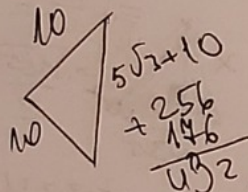 10
10
5√3+10
+ 256
176
432